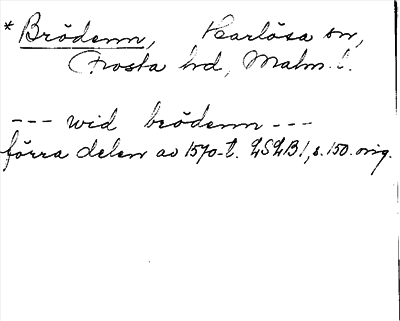 * Brödenn, Harlösa sn,
Frosta hd, Malm. l.
--- wid brödenn ---
förra delen av 1570-t. LSLB 1, s. 150. orig.